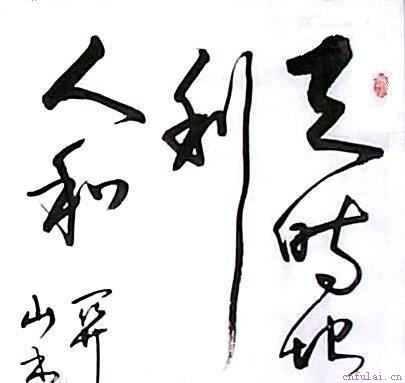 天时地
利
人和
cnfulai.cn